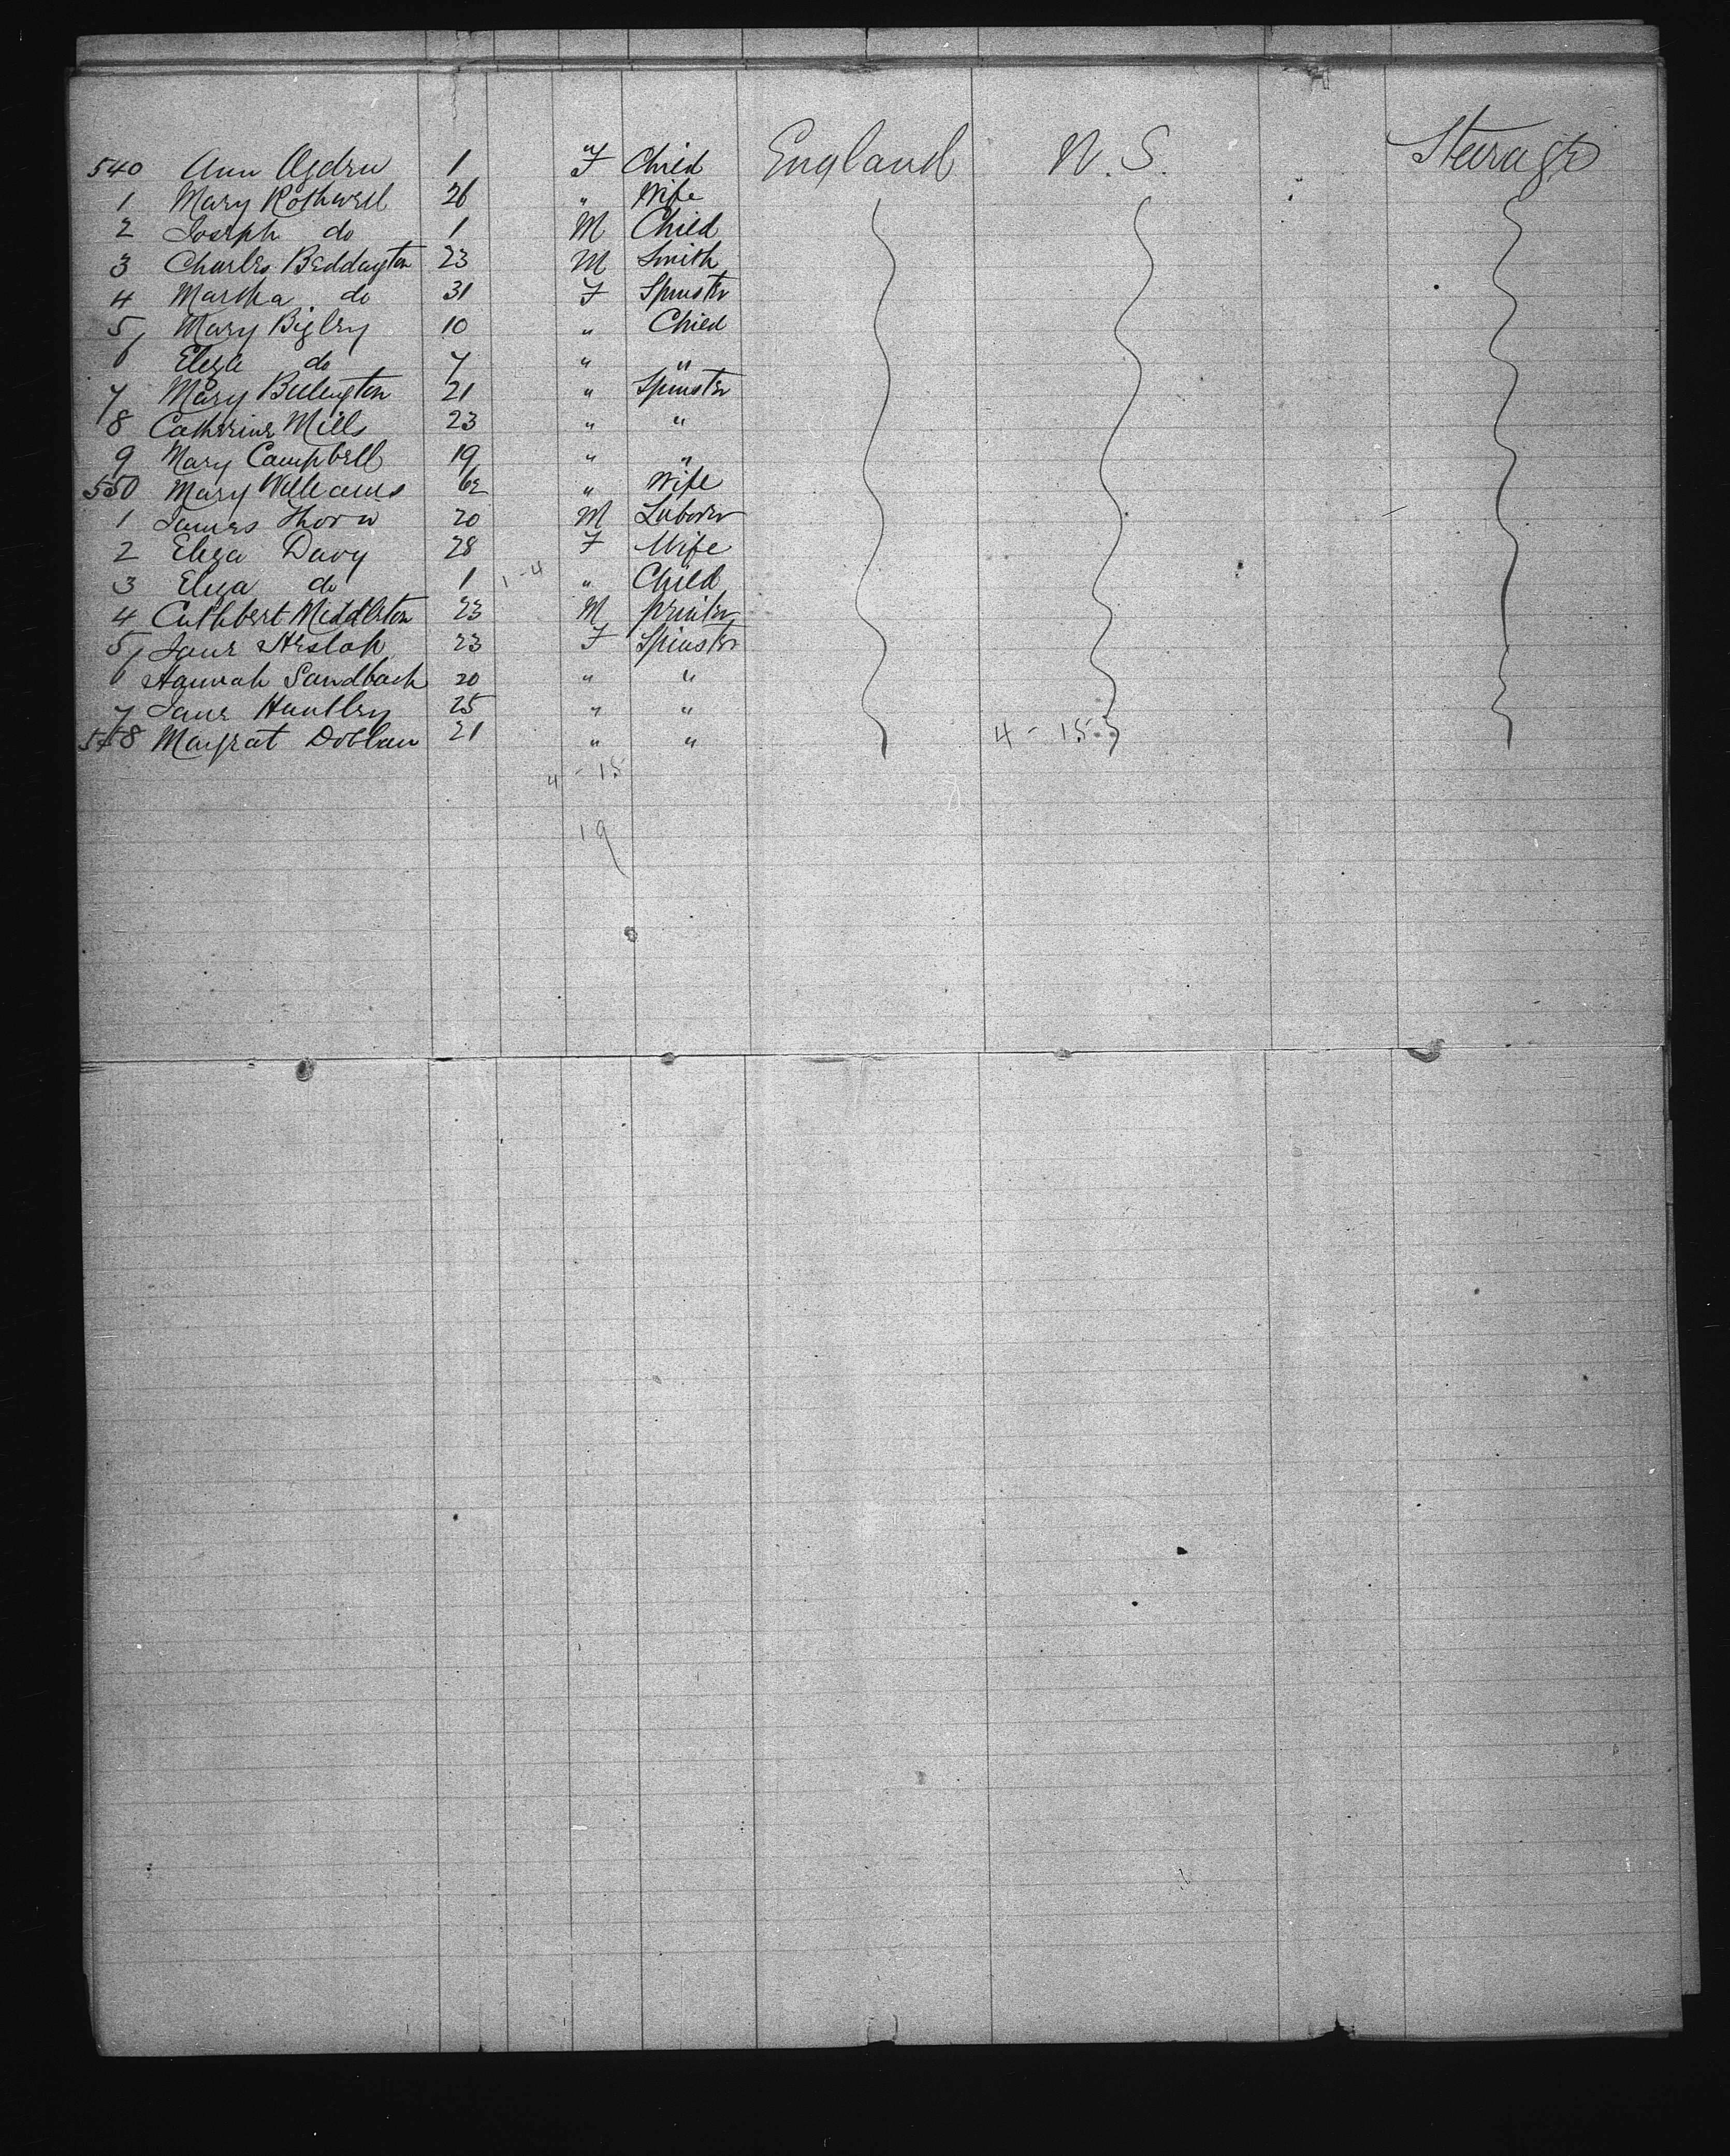 540 Ann Ogden 1 F Child England N.S. Steerage
1 Mary Rothwell 26 " Wife
2 Joseph do 1 M Child
3 Charles Beddington 23 M Smith
4 Martha do 31 F Spinster
5 Mary Bigley 10 " Child
6 Eliza do 7 " "
7 Mary Billington 21 " Spinster
8 Catherine Mills 23 " "
9 Mary Campbell 19 " "
550 Mary Williams 62 " Wife
1 James Thorn 20 M Laborer
2 Eliza Davy 28 F Wife
3 Eliza do 1 1-4 " Child
4 Cuthbert Middleton 23 M printer
5 Jane Heslop 23 F Spinster
6 Hannah Sandbach 20 " "
7 Jane Huntley 25 " "
558 Margrat 21 " " 4 - 15
4 - 15
19